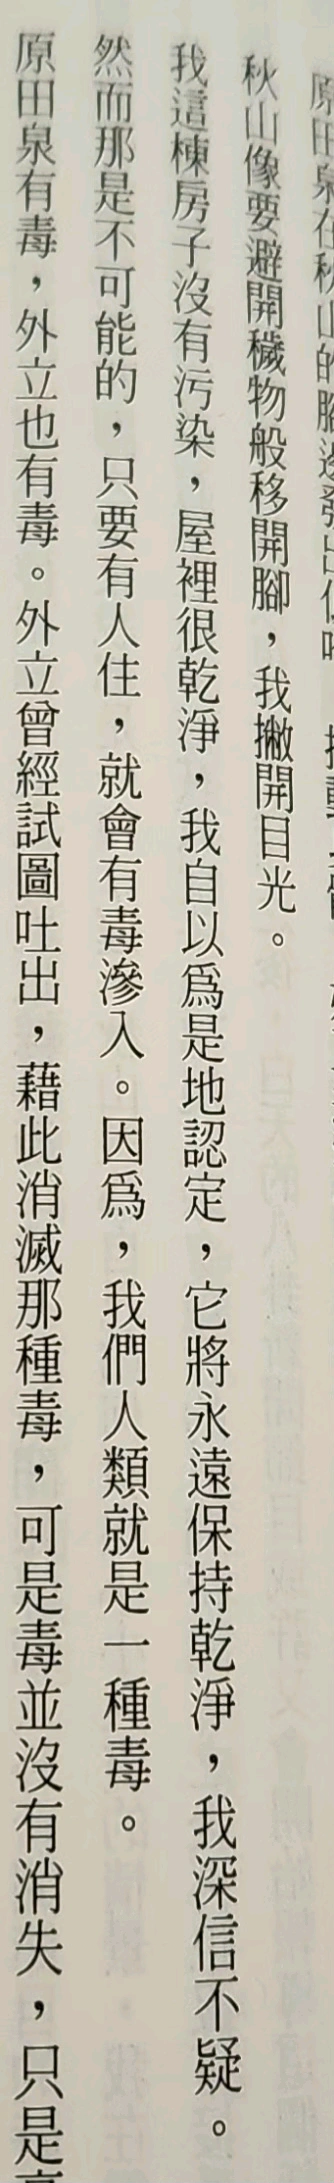 原田泉在秋山的腳邊發出
秋山像要避開穢物般移開腳，我撇開目光。
我這棟房子沒有污染，屋裡很乾淨，我自以爲是地認定，它將永遠保持乾淨，我深信不疑。
然而那是不可能的，只要有人住，就會有毒滲入。因爲，我們人類就是一種毒。
原田泉有毒，外立也有毒。外立曾經試圖吐出，藉此消滅那種毒，可是毒並沒有消失，只是